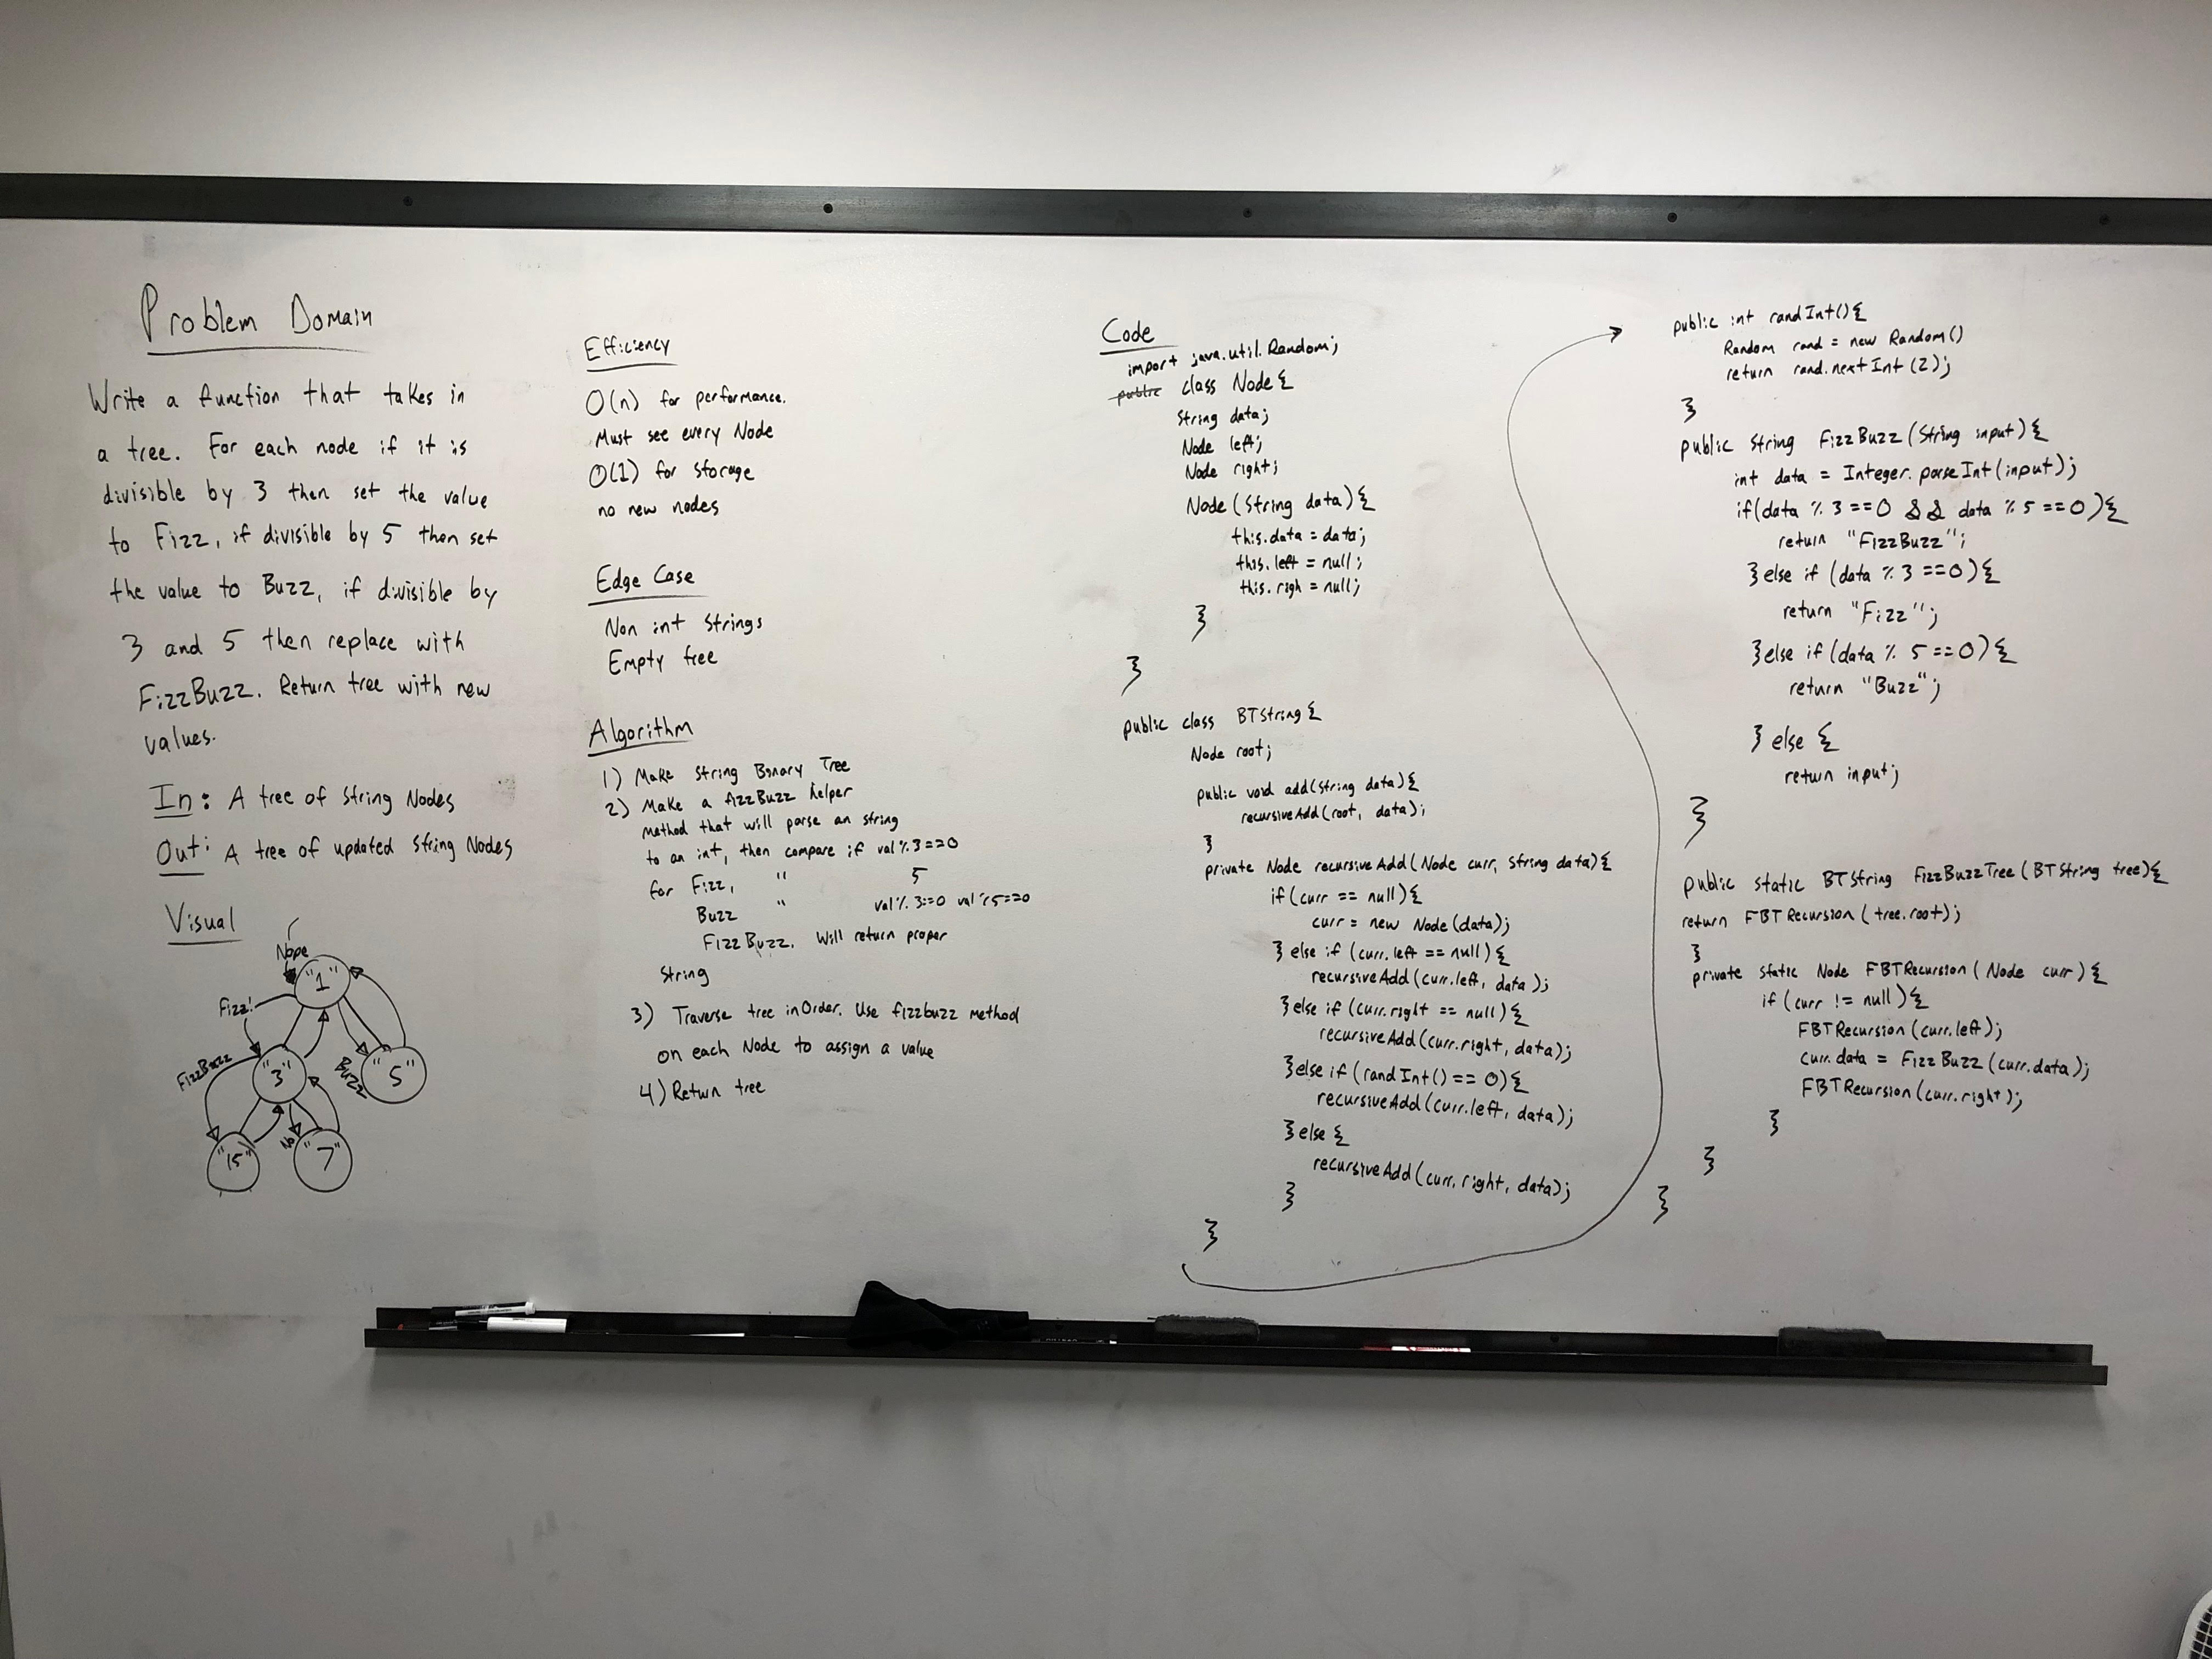 Problem Domain
Write a function that takes in
a tree. For each node if it is
divisible by 3 then set the value
to Fizz, if divisible by 5 then set
the value to Buzz, if divisible by
3 and 5 then replace with
FizzBuzz. Return tree with new
values.
In: A tree of String Nodes
Out: A tree of updated String Nodes
Visual
Nope
"1"
Fizz!
FizzBuzz
"3"
Buzz
"5"
"15"
No
"7"
Efficiency
O(n) for performance.
Must see every Node
O(1) for storage
no new nodes
Edge Case
Non int Strings
Empty tree
Algorithm
1) Make String Binary Tree
2) Make a fizzBuzz helper
method that will parse an string
to an int, then compare if val%3==0
for Fizz, " 5
Buzz " val%3==0 val%5==0
FizzBuzz. Will return proper
String
3) Traverse tree inOrder. Use fizzbuzz method
on each Node to assign a value
4) Return tree
Code
import java.util.Random;
public class Node{
String data;
Node left;
Node right;
Node(String data){
this.data = data;
this.left = null;
this.righ = null;
}
}
public class BTString{
Node root;
public void add(String data){
recursiveAdd(root, data);
}
private Node recursiveAdd(Node curr, String data){
if(curr == null){
curr = new Node(data);
} else if (curr.left == null){
recursiveAdd(curr.left, data);
}else if (curr.right == null){
recursiveAdd(curr.right, data);
}else if (randInt() == 0){
recursiveAdd(curr.left, data);
}else{
recursiveAdd(curr.right, data);
}
}
public int randInt(){
Random rand = new Random()
return rand.nextInt(2);
}
public String FizzBuzz(String input){
int data = Integer.parseInt(input);
if(data % 3 ==0 && data % 5 ==0){
return "FizzBuzz";
}else if (data % 3 ==0){
return "Fizz";
}else if (data % 5 ==0){
return "Buzz";
} else {
return input;
}
public static BTString FizzBuzzTree(BTString tree){
return FBTRecursion(tree.root);
}
private static Node FBTRecursion(Node curr){
if(curr != null){
FBTRecursion(curr.left);
curr.data = FizzBuzz(curr.data);
FBTRecursion(curr.right);
}
}
}